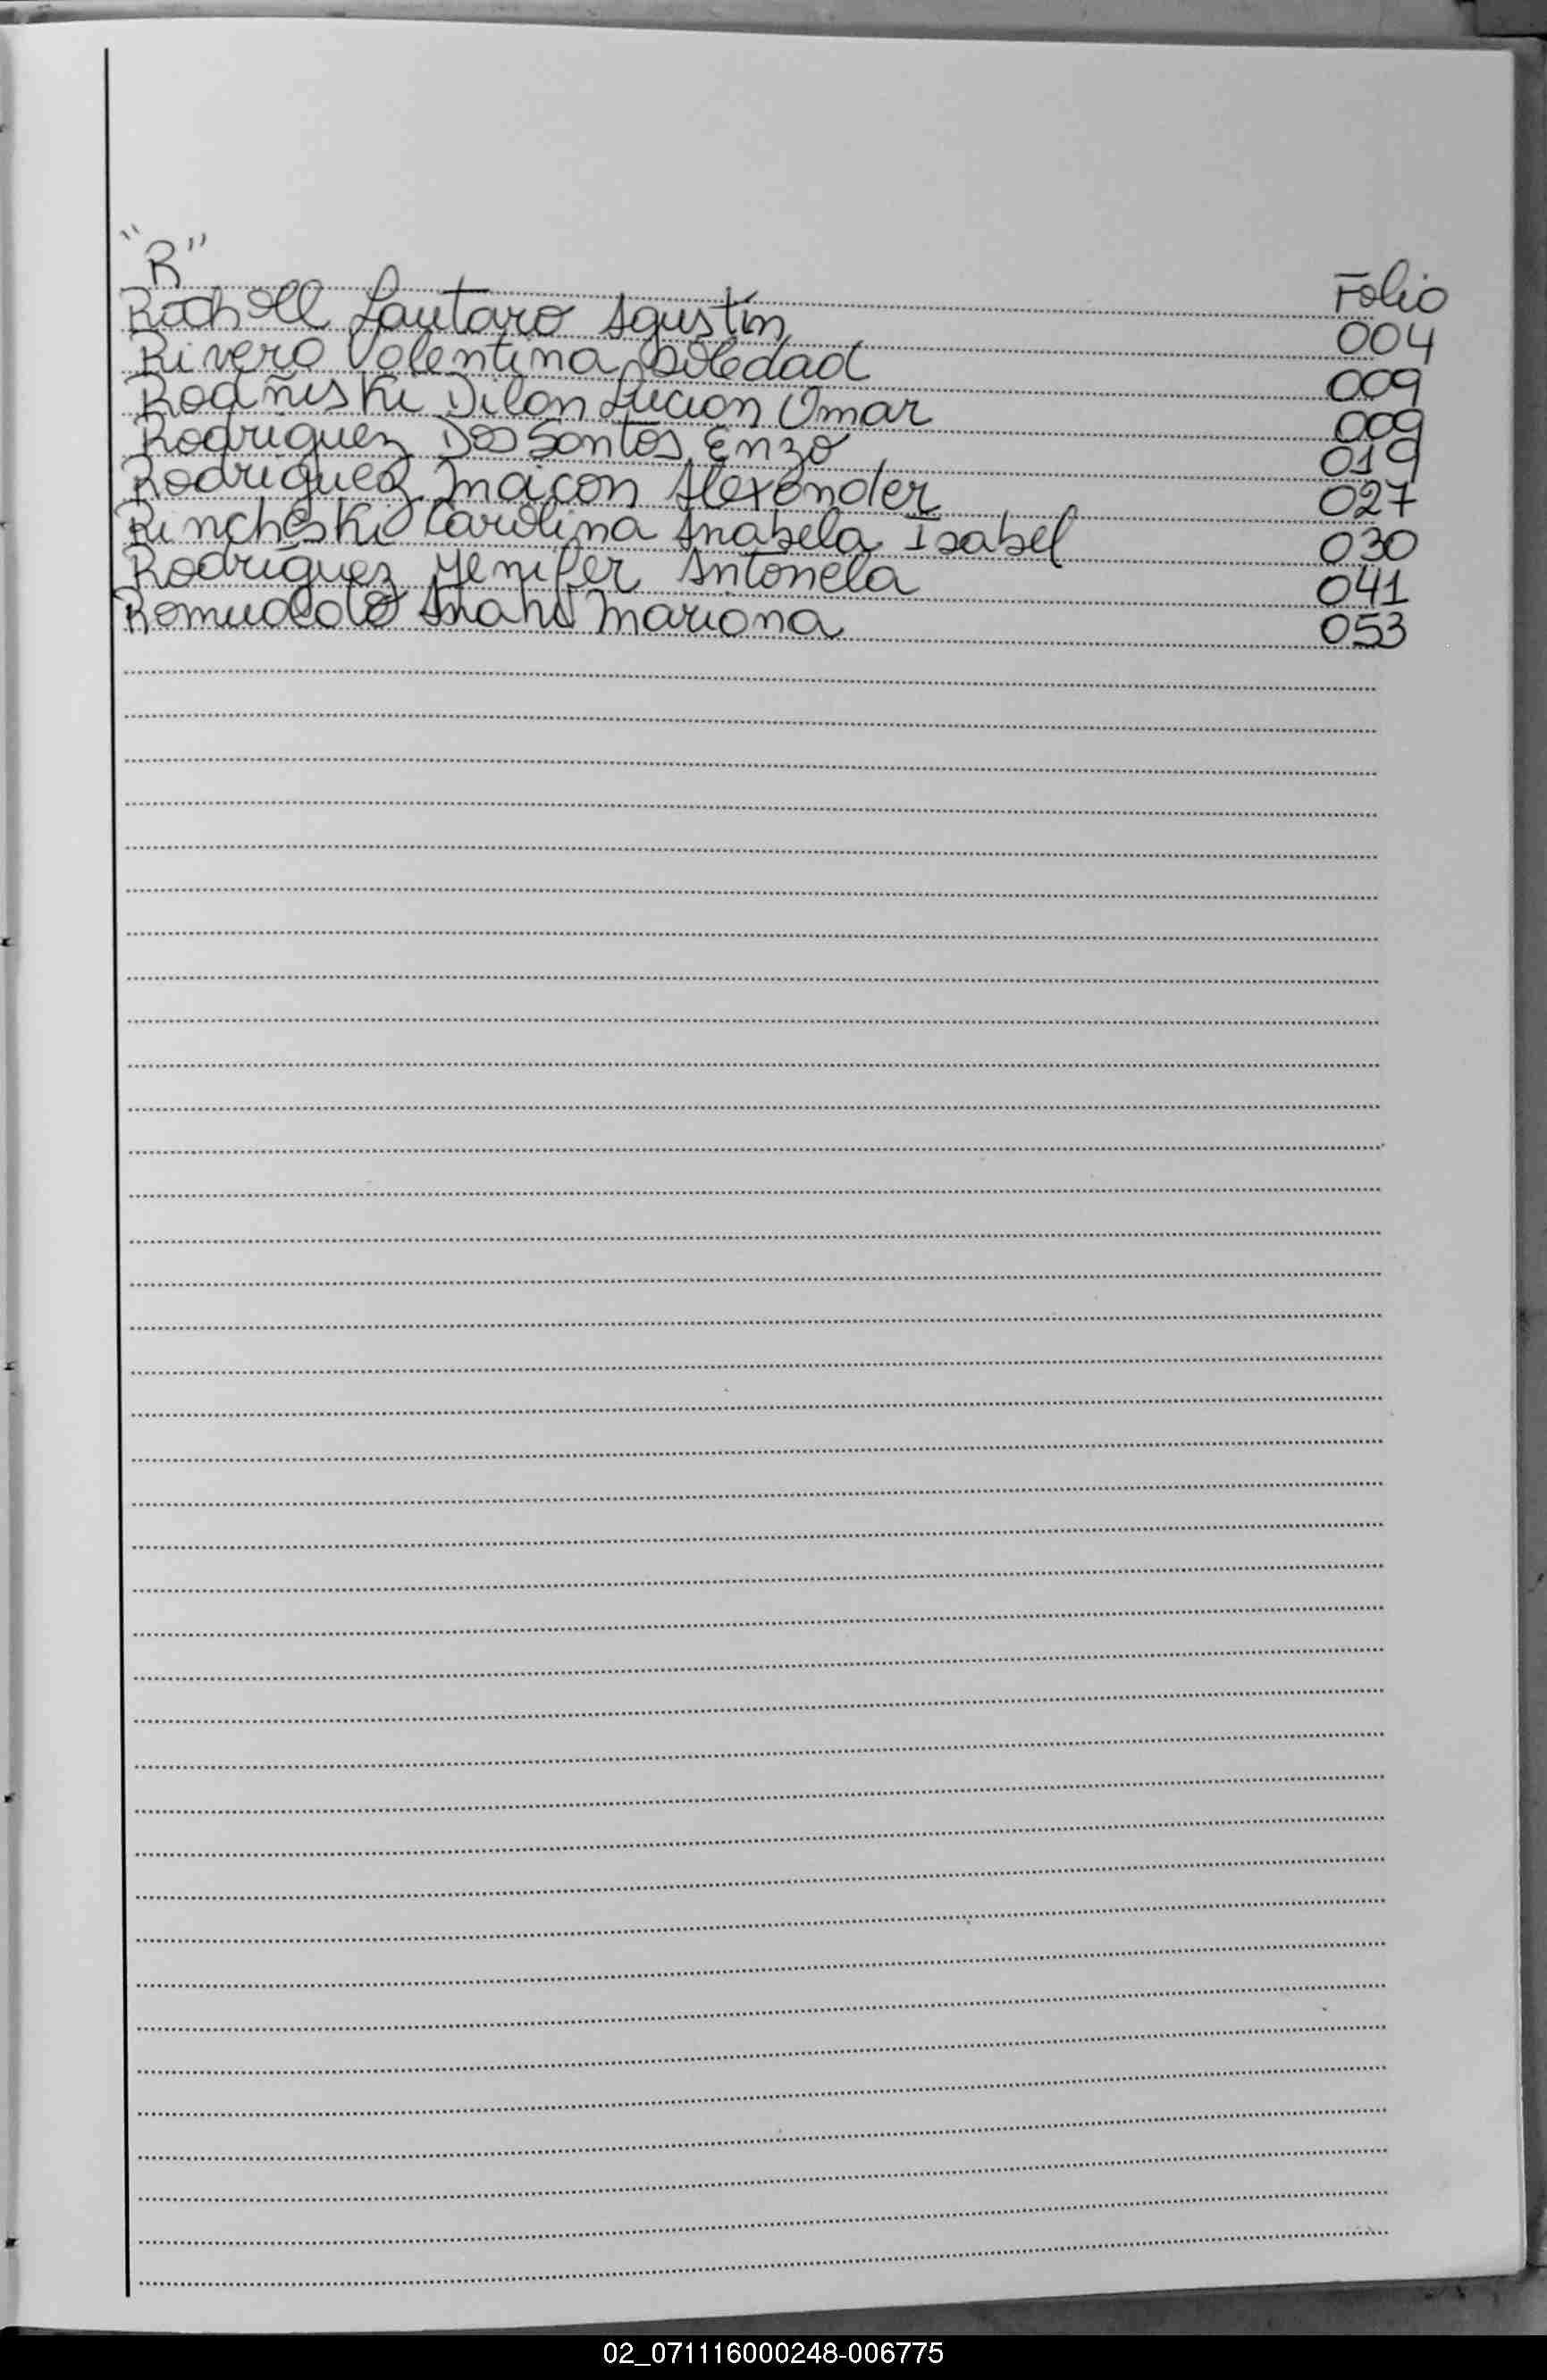 "R" Folio
Rochell Lautaro Agustin 004
Rivero Valentina Soledad 009
Rodñiski Dilan Lucian Omar 009
Rodriguez Dos Santos Enzo 019
Rodriguez Maicon Alexander 027
Rincheski Carolina Anabela Isabel 030
Rodriguez Yenifer Antonela 041
Romualdo Anahi Mariana 053
02_071116000248-006775